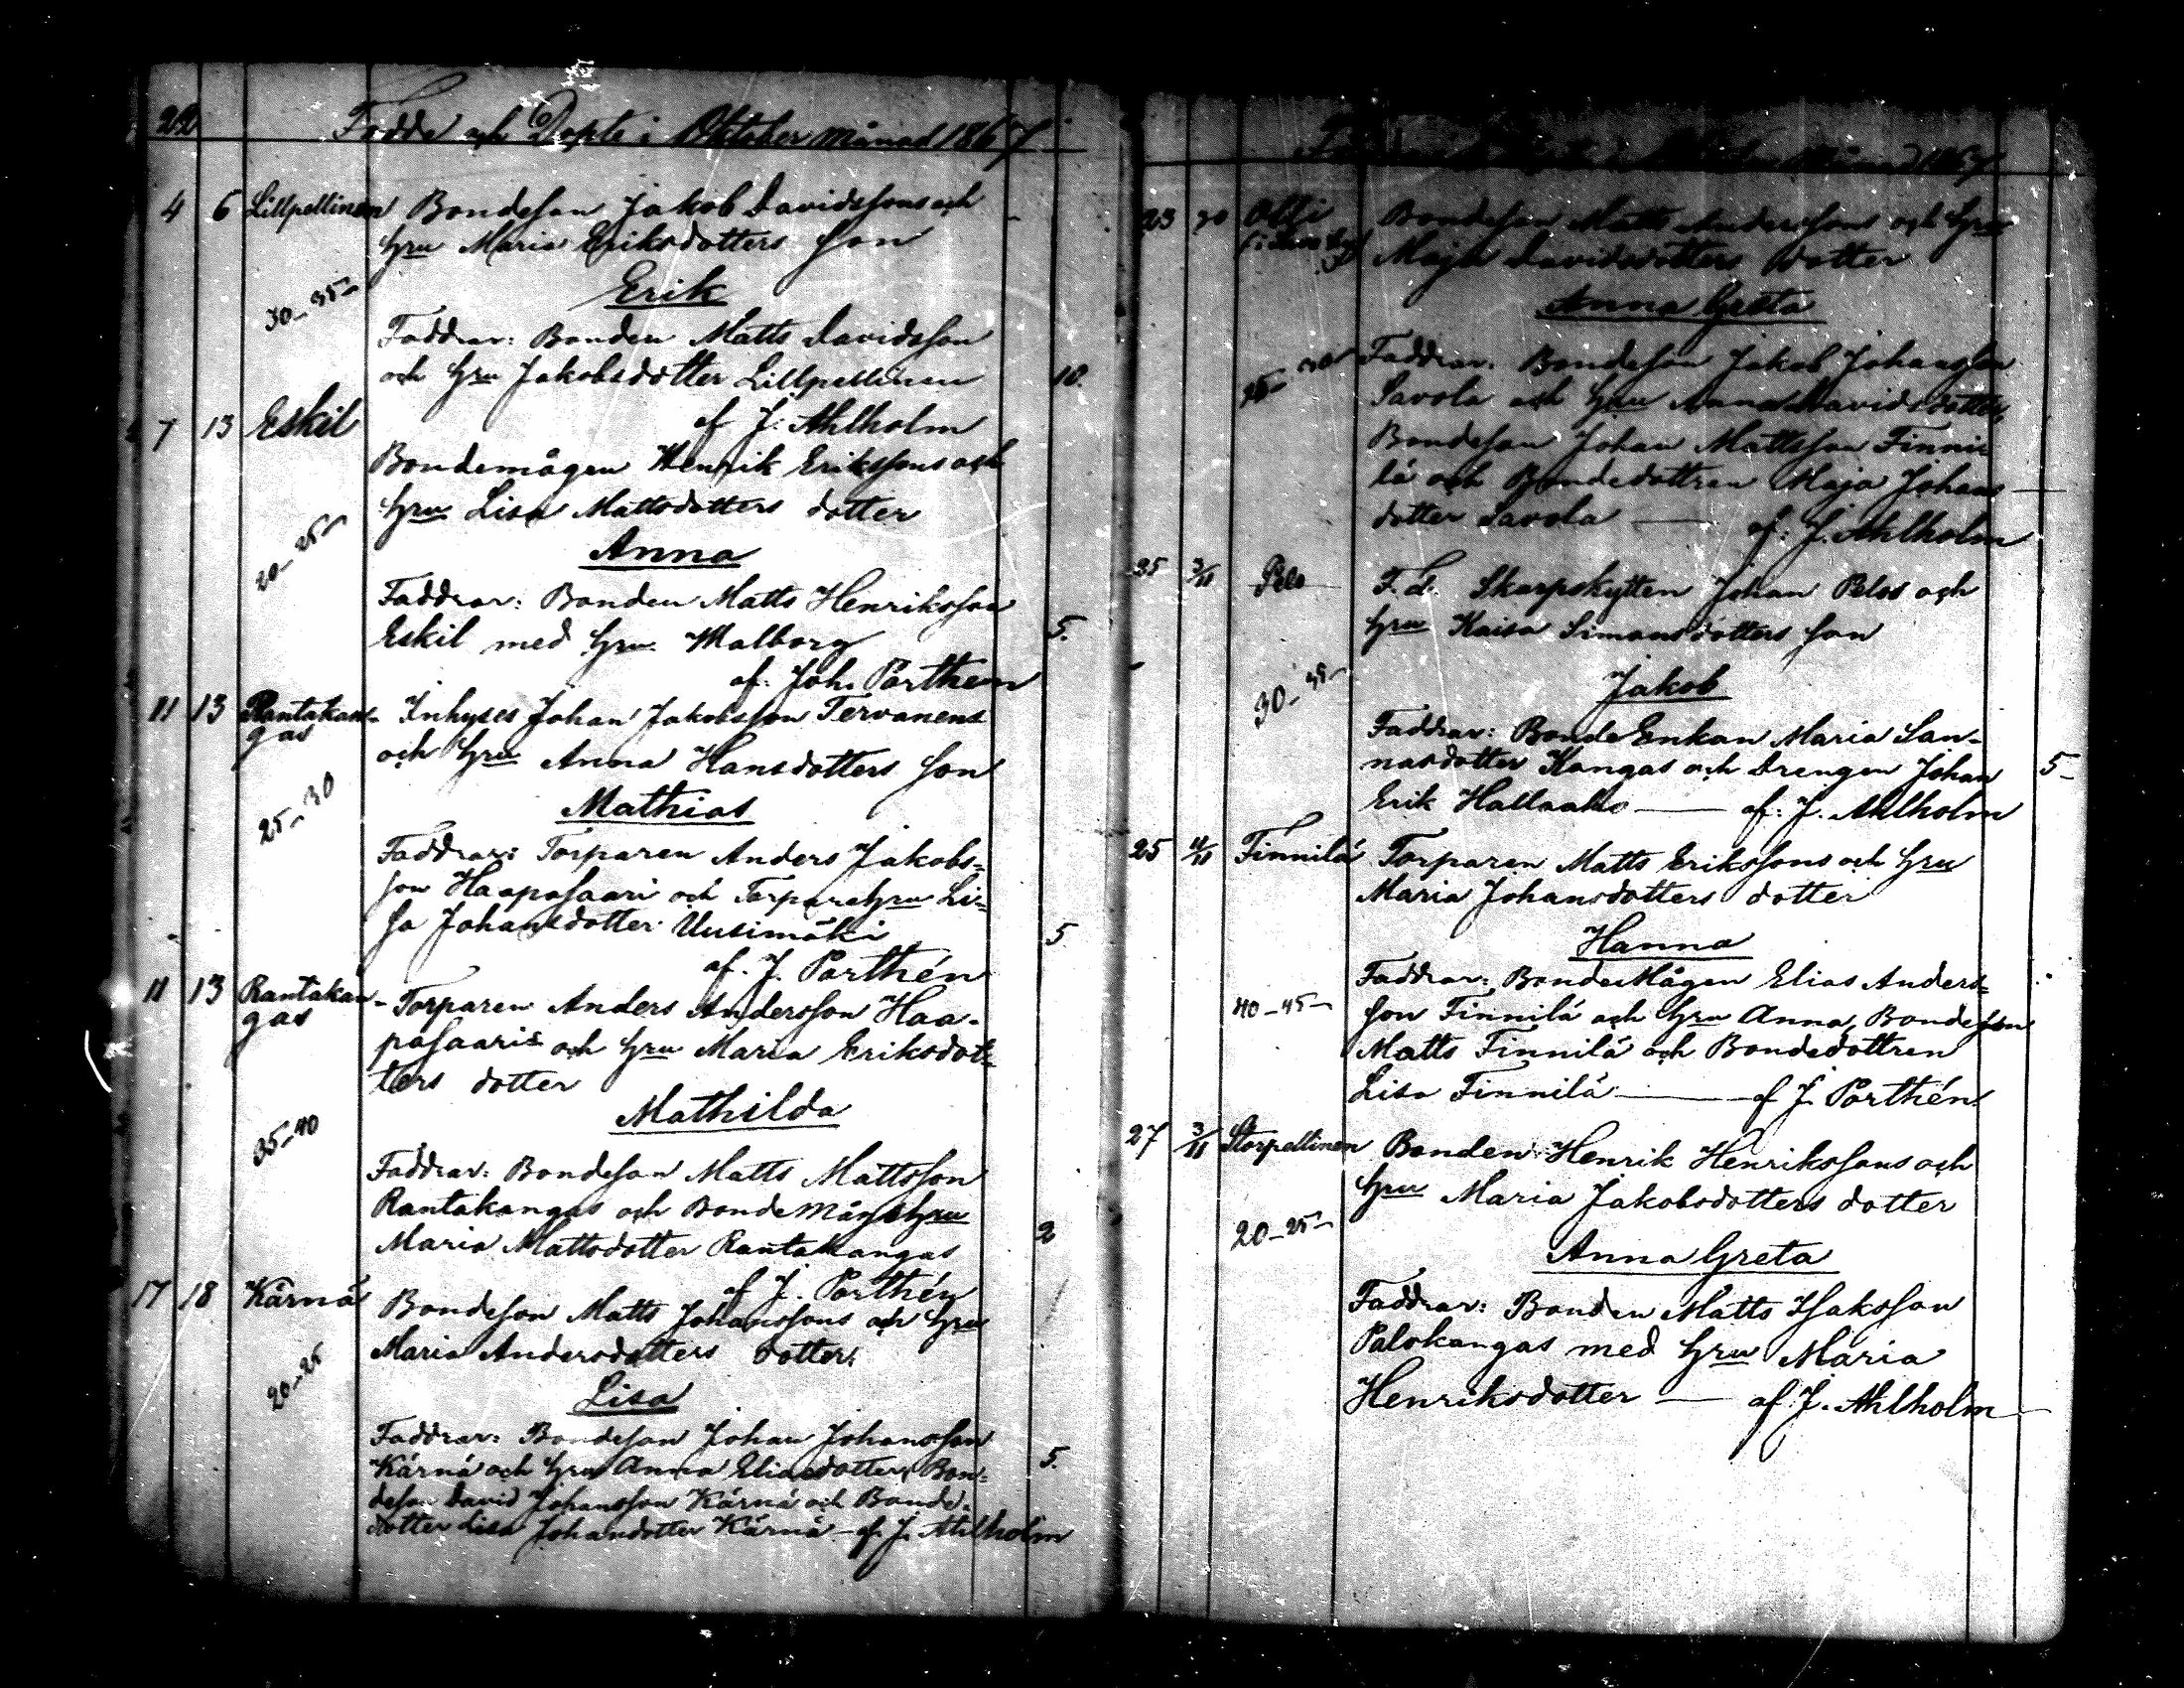 22
Födde och Döpte i Oktober månad 1867
4 6 Lillpellinen Bondeson Jakob Davidssons och
hru Maria Eriksdotters son
30-35
Erik
Faddrar: Bonden Matts Davidsson
och hru Jakobsdotter Lillpellinen 10.
af J. Ahlholm
7 13 Eskil
Bondemågen Henrik Erikssons och
hru Lisa Mattsdotters dotter
20-25
Anna
Faddrar: Bonden Matts Henriksson
Eskil med hru Malborg 5.
af. Joh. Porthén
11 13 Rantakan-
gas
Inhyses Johan Jakobsson Tervanens
och hru Anna Hansdotters son
25-30
Mathias
Faddrar: Torparen Anders Jakobs=
son Haapasaari och Torparehru Li=
sa Johansdotter Uusimäki 5
af. J. Porthén
11 13 Rantakan-
gas
Torparen Anders Andersson Haa-
pasaaris och hru Maria Eriksdot=
ters dotter
Mathilda
35-40
Faddrar: Bondeson Matts Mattsson
Rantakangas och Bondemågshru
Maria Mattsdotter Rantakangas 2
af J. Porthén
17 18 Kärnä
Bondeson Matts Johanssons och hru
Maria Andersdotters dotter
20-25
Lisa
Faddrar: Bondeson Johan Johansson
Kärnä och hru Anna Eliasdotter, Bon= 5.
deson David Johansson Kärnä och Bonde=
dotter Lisa Johansdotter Kärnä - af J. Ahlholm
1867
23 30 Olli
Bondeson Matts Anderssons och hru
Maja Davidsdotters dotter
Anna Greta
Faddrar: Bondeson Jakob Johansson
Savola och hru Anna Davidsdotter,
Bondeson Johan Mattsson Finni=
lä och Bondedottren Maja Johans
dotter Savola — af: J. Ahlholm
25 3/11 Pelo
F.d. Skarpskytten Johan Pelos och
hru Kaisa Simonsdotters son
Jakob
30-35
Faddrar: BondeEnkan Maria San-
nasdotter Kangas och Drengen Johan 5-
Erik Hallaaho — af: J. Ahlholm
25 11/11 Finnilä Torparen Matts Erikssons och hru
Maria Johansdotters dotter
Hanna
Faddrar: BondeMågen Elias Anders=
40-45
son Finnilä och hru Anna, Bondeson
Matts Finnilä och Bondedottren
Lisa Finnilä — af J. Porthén
27 3/11 Storpellinen Bonden Henrik Henrikssons och
hru Maria Jakobsdotters dotter
20-25
Anna Greta
Faddrar: Bonden Matts Isaksson
Palokangas med hru Maria
Henriksdotter — af J. Ahlholm